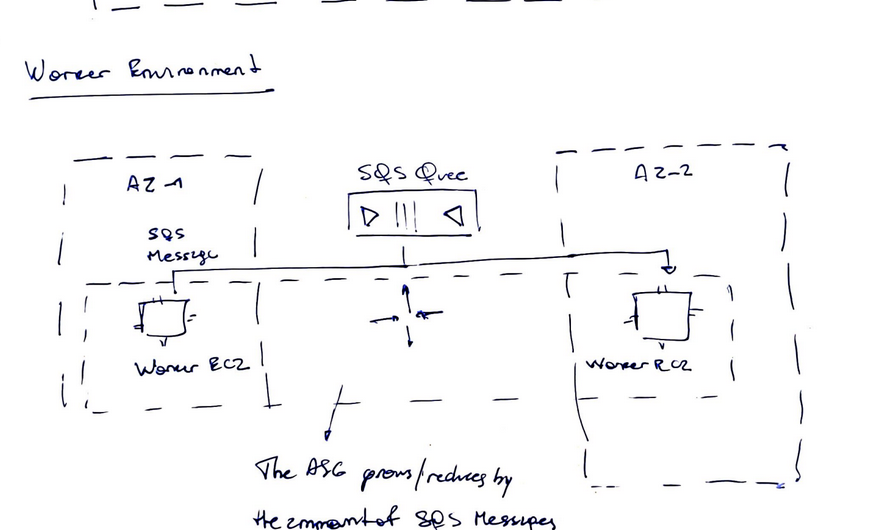 Worker Environment
AZ-1
SQS Queue
AZ-2
SQS
Message
Worker EC2
Worker EC2
The ASG grows/reduces by
the ammount of SQS Messages